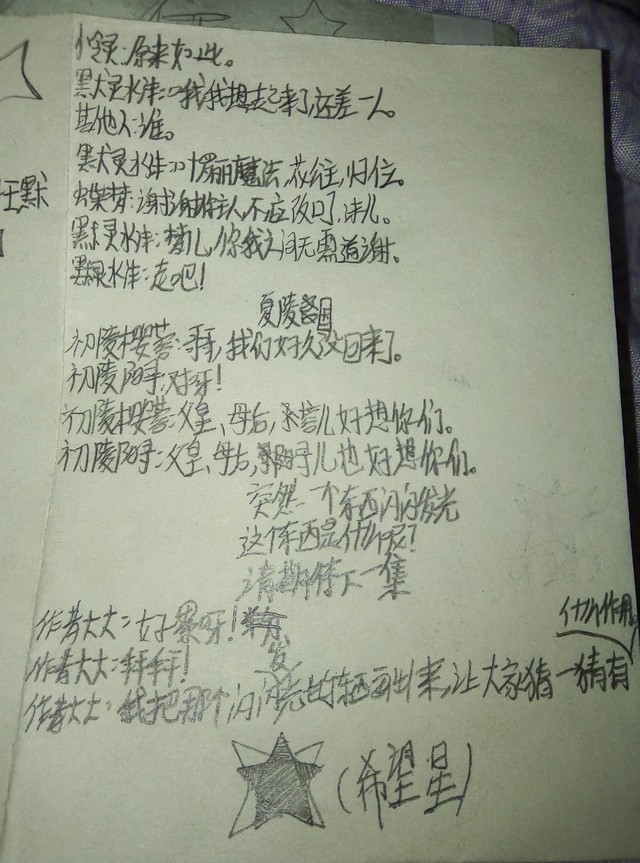 王默
冷灵:原来如此。
默灵水伴:哦我想起来了还差一人。
其他人:谁。
默灵水伴:叶罗丽魔法,花往,归位。
紫梦:谢谢主人,不应改口,沫儿。
默灵水伴:梦儿,你我之间无需道谢。
默灵水伴:走吧!
夏陵国
初陵樱蓉:哥,我们好久没回来了。
初陵阳:对呀!
初陵樱蓉:父皇、母后,蓉儿好想你们。
初陵阳:父皇、母后,阳儿也好想你们。
突然一个东西闪闪发光
这个东西是什么呢?
请期待下一集
作者大大:好累呀!
作者大大:拜拜!
作者大大:我把那个闪闪发光的东西画出来,让大家猜一猜有什么作用
(希望星)